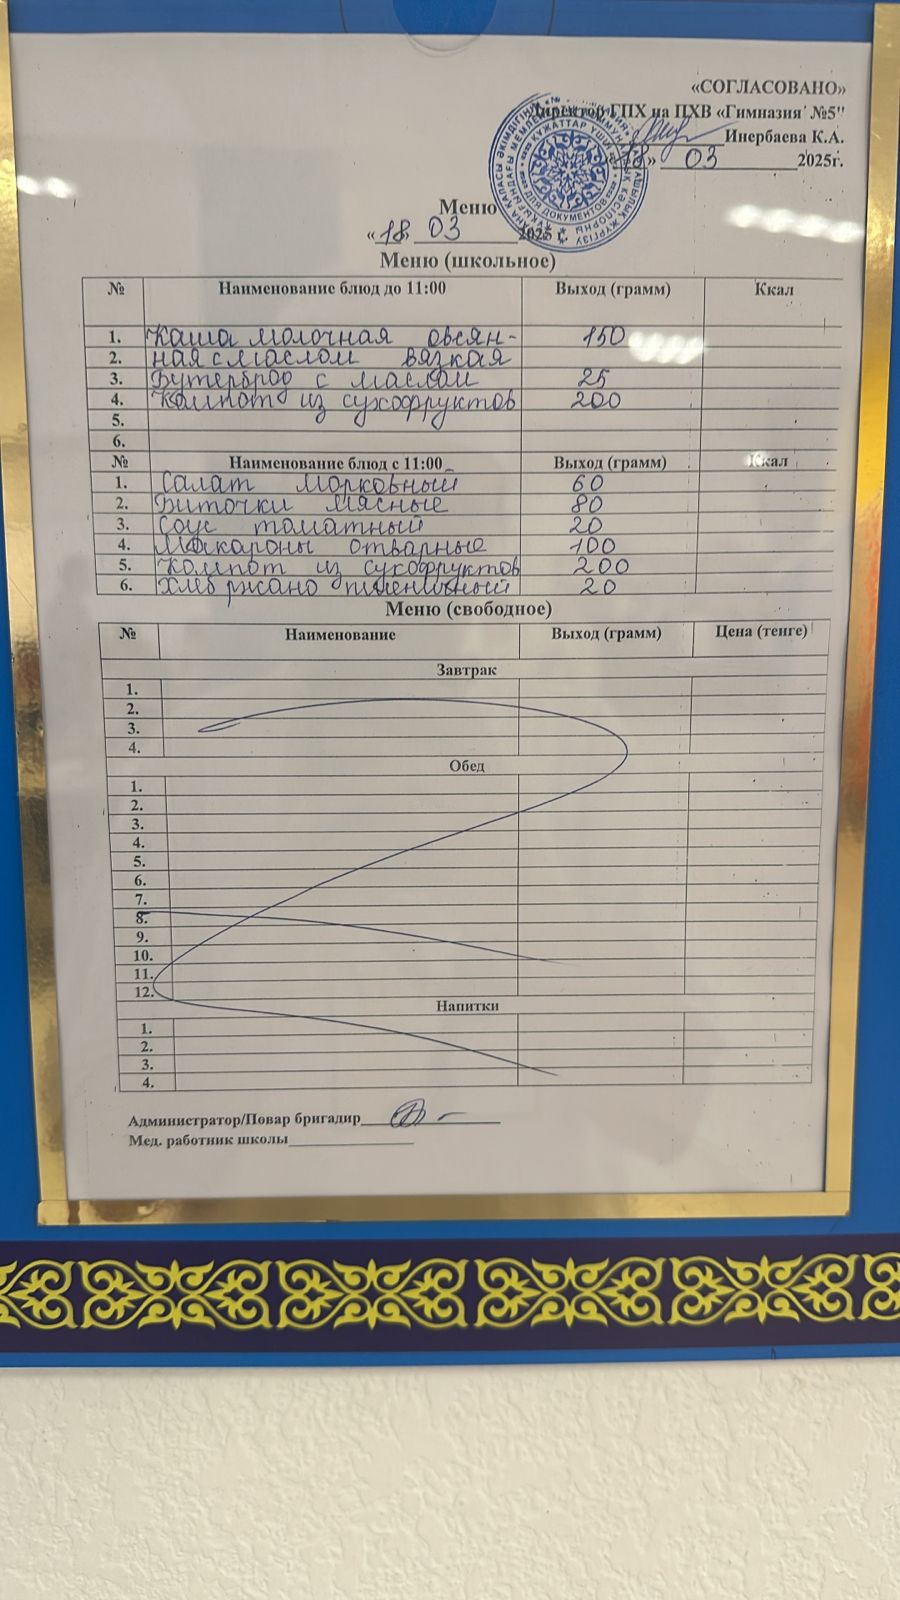 «СОГЛАСОВАНО»
Директор ГПХ на ПХВ «Гимназия №5"
Инербаева К.А.
«18» 03 2025г.
Меню
«18» 03 2025 г.
Меню (школьное)
№ Наименование блюд до 11:00 Выход (грамм) Ккал
1. Каша молочная овсян- 150
2. ная с маслом вязкая
3. Бутерброд с маслом 25
4. Компот из сухофруктов 200
5.
6.
№ Наименование блюд с 11:00 Выход (грамм) Ккал
1. Салат морковный 60
2. Биточки мясные 80
3. Соус томатный 20
4. Макароны отварные 100
5. Компот из сухофруктов 200
6. Хлеб ржано пшеничный 20
Меню (свободное)
№ Наименование Выход (грамм) Цена (тенге)
Завтрак
1.
2.
3.
4.
Обед
1.
2.
3.
4.
5.
6.
7.
8.
9.
10.
11.
12.
Напитки
1.
2.
3.
4.
Администратор/Повар бригадир
Мед. работник школы
ҚҰЖАТТАР ҮШІН
ДЛЯ ДОКУМЕНТОВ